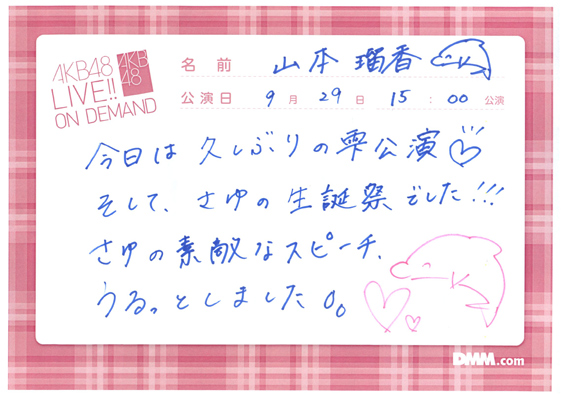 AKB48
LIVE!!
ON DEMAND
AKB
48
名 前 山本 瑠香
公演日 9 月 29 日 15 : 00 公演
今日は 久しぶりの雫公演♡
そして、さゆの生誕祭でした!!!
さゆの素敵なスピーチ、
うるっとしました。
DMM.com